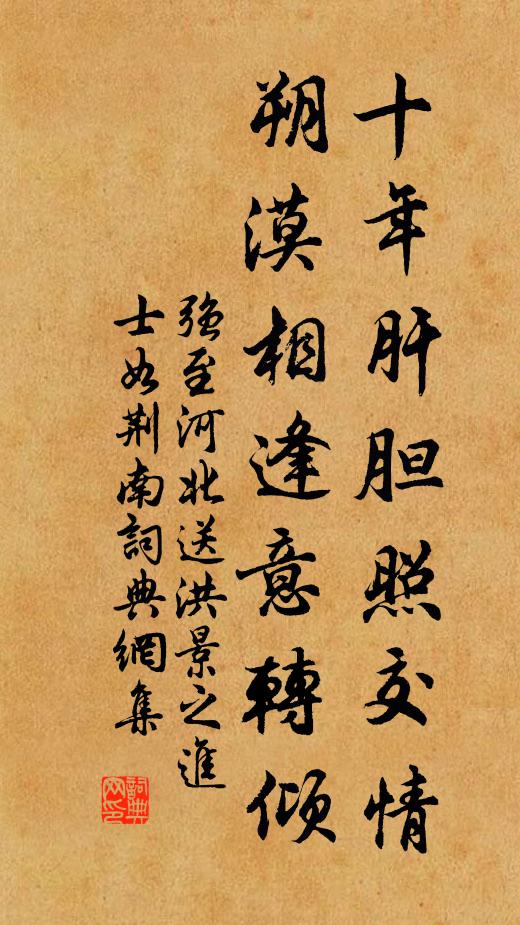 十年肝胆照交情
朔漠相逢意轉倾
強至河北送洪景之進
士如荆南詞典網集
詞典
网印